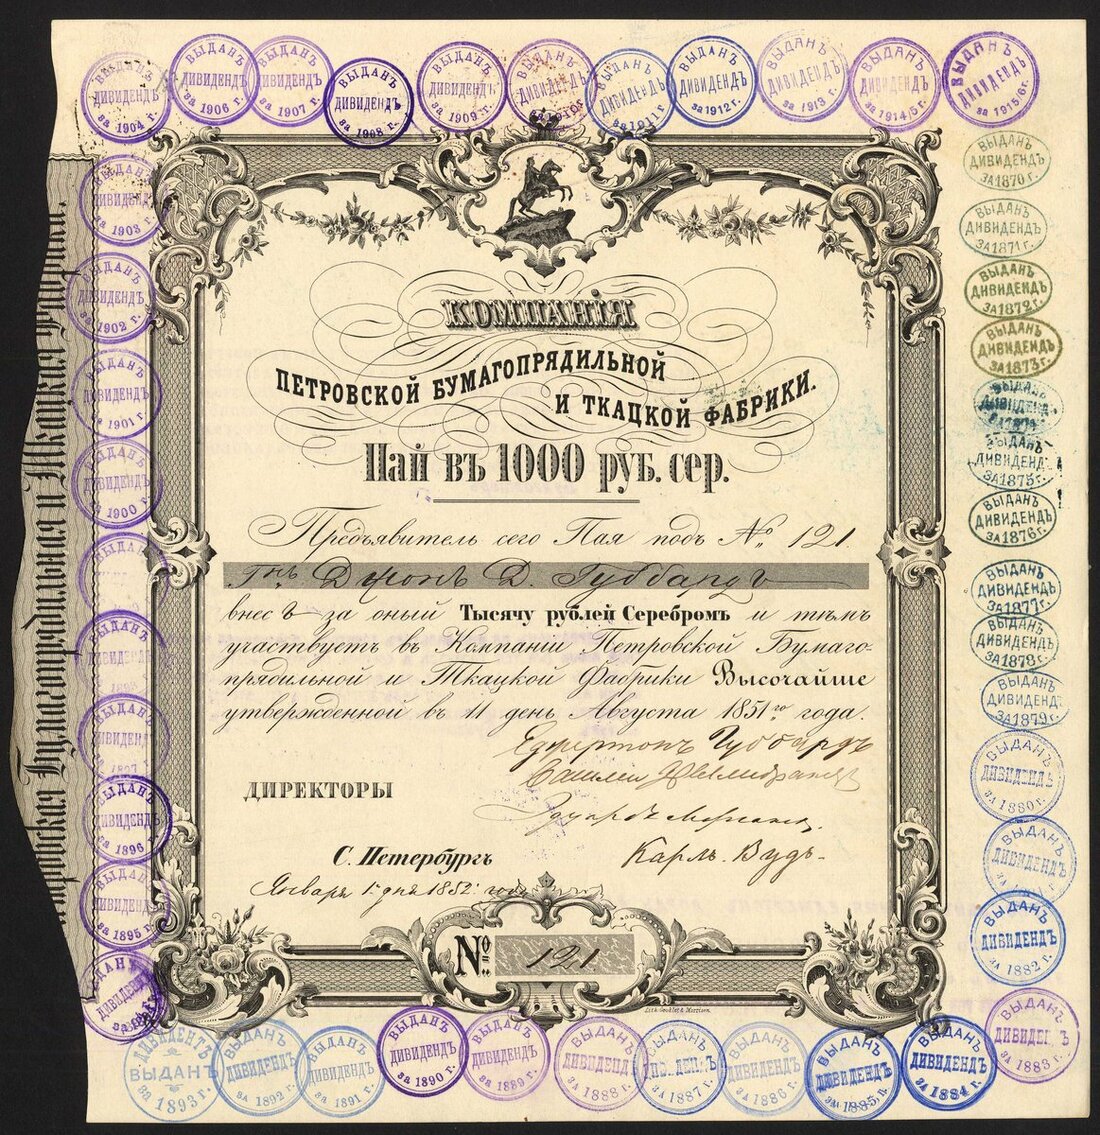 ВЫДАНЪ ДИВИДЕНДЪ за 1904 г.
ВЫДАНЪ ДИВИДЕНДЪ за 1906 г.
ВЫДАНЪ ДИВИДЕНДЪ за 1907 г.
ВЫДАНЪ ДИВИДЕНДЪ за 1908 г.
ВЫДАНЪ ДИВИДЕНДЪ за 1909 г.
ВЫДАНЪ ДИВИДЕНДЪ
ВЫДАНЪ ДИВИДЕНДЪ за 1911 г.
ВЫДАНЪ ДИВИДЕНДЪ за 1912 г.
ВЫДАНЪ ДИВИДЕНДЪ за 1913 г.
ВЫДАНЪ ДИВИДЕНДЪ за 1914/5 г.
ВЫДАНЪ ДИВИДЕНДЪ за 1915/6 г.
КОМПАНІЯ
ПЕТРОВСКОЙ БУМАГОПРЯДИЛЬНОЙ
И ТКАЦКОЙ ФАБРИКИ.
Пай въ 1000 руб. сер.
Предъявитель сего Пая подъ №. 121.
Гнъ Джонъ Д. Губбардъ
внесъ за оный Тысячу рублей Серебромъ и тѣмъ
участвуетъ въ Компаніи Петровской Бумаго-
прядильной и Ткацкой Фабрики Высочайше
утвержденной въ 11 день Августа 1851го года.
Эджертонъ Губбардъ
ДИРЕКТОРЫ
Эдуардъ
Карлъ Вудъ
С. Петербургъ
Января 1 дня 1852 года
№ 121
Lith. Goedler & Morrison.
Бумагопрядильная и Ткацкая
ВЫДАНЪ ДИВИДЕНДЪ за 1903 г.
ВЫДАНЪ ДИВИДЕНДЪ за 1902 г.
ВЫДАНЪ ДИВИДЕНДЪ за 1901 г.
ВЫДАНЪ ДИВИДЕНДЪ за 1900 г.
ВЫДАНЪ
ВЫДАНЪ ДИВИДЕНДЪ
ВЫДАНЪ ДИВИДЕНДЪ
ВЫДАНЪ ДИВИДЕНДЪ за 1896 г.
ВЫДАНЪ ДИВИДЕНДЪ за 1895 г.
ВЫДАНЪ ДИВИДЕНДЪ
ВЫДАНЪ ДИВИДЕНДЪ ЗА 1870 г.
ВЫДАНЪ ДИВИДЕНДЪ ЗА 1871 г.
ВЫДАНЪ ДИВИДЕНДЪ ЗА 1872 г.
ВЫДАНЪ ДИВИДЕНДЪ ЗА 1873 г.
ВЫДАНЪ ДИВИДЕНДЪ
ВЫДАНЪ ДИВИДЕНДЪ ЗА 1875 г.
ВЫДАНЪ ДИВИДЕНДЪ ЗА 1876 г.
ВЫДАНЪ ДИВИДЕНДЪ ЗА 1877 г.
ВЫДАНЪ ДИВИДЕНДЪ ЗА 1878 г.
ВЫДАНЪ ДИВИДЕНДЪ ЗА 1879 г.
ВЫДАНЪ ДИВИДЕНДЪ ЗА 1880 г.
ВЫДАНЪ ДИВИДЕНДЪ
ВЫДАНЪ ДИВИДЕНДЪ ЗА 1882 г.
ВЫДАНЪ ЗА 1883 г.
ДИВИДЕНТЪ ВЫДАНЪ за 1893 г.
ВЫДАНЪ ДИВИДЕНДЪ за 1892 г.
ВЫДАНЪ ДИВИДЕНДЪ за 1891 г.
ВЫДАНЪ ДИВИДЕНДЪ за 1890 г.
ВЫДАНЪ ДИВИДЕНДЪ за 1889 г.
ВЫДАНЪ ДИВИДЕНДЪ за 1888 г.
ВЫДАНЪ за 1887 г.
ВЫДАНЪ ДИВИДЕНДЪ за 1886 г.
ВЫДАНЪ ДИВИДЕНДЪ за 1885 г.
ВЫДАНЪ ДИВИДЕНДЪ за 1884 г.